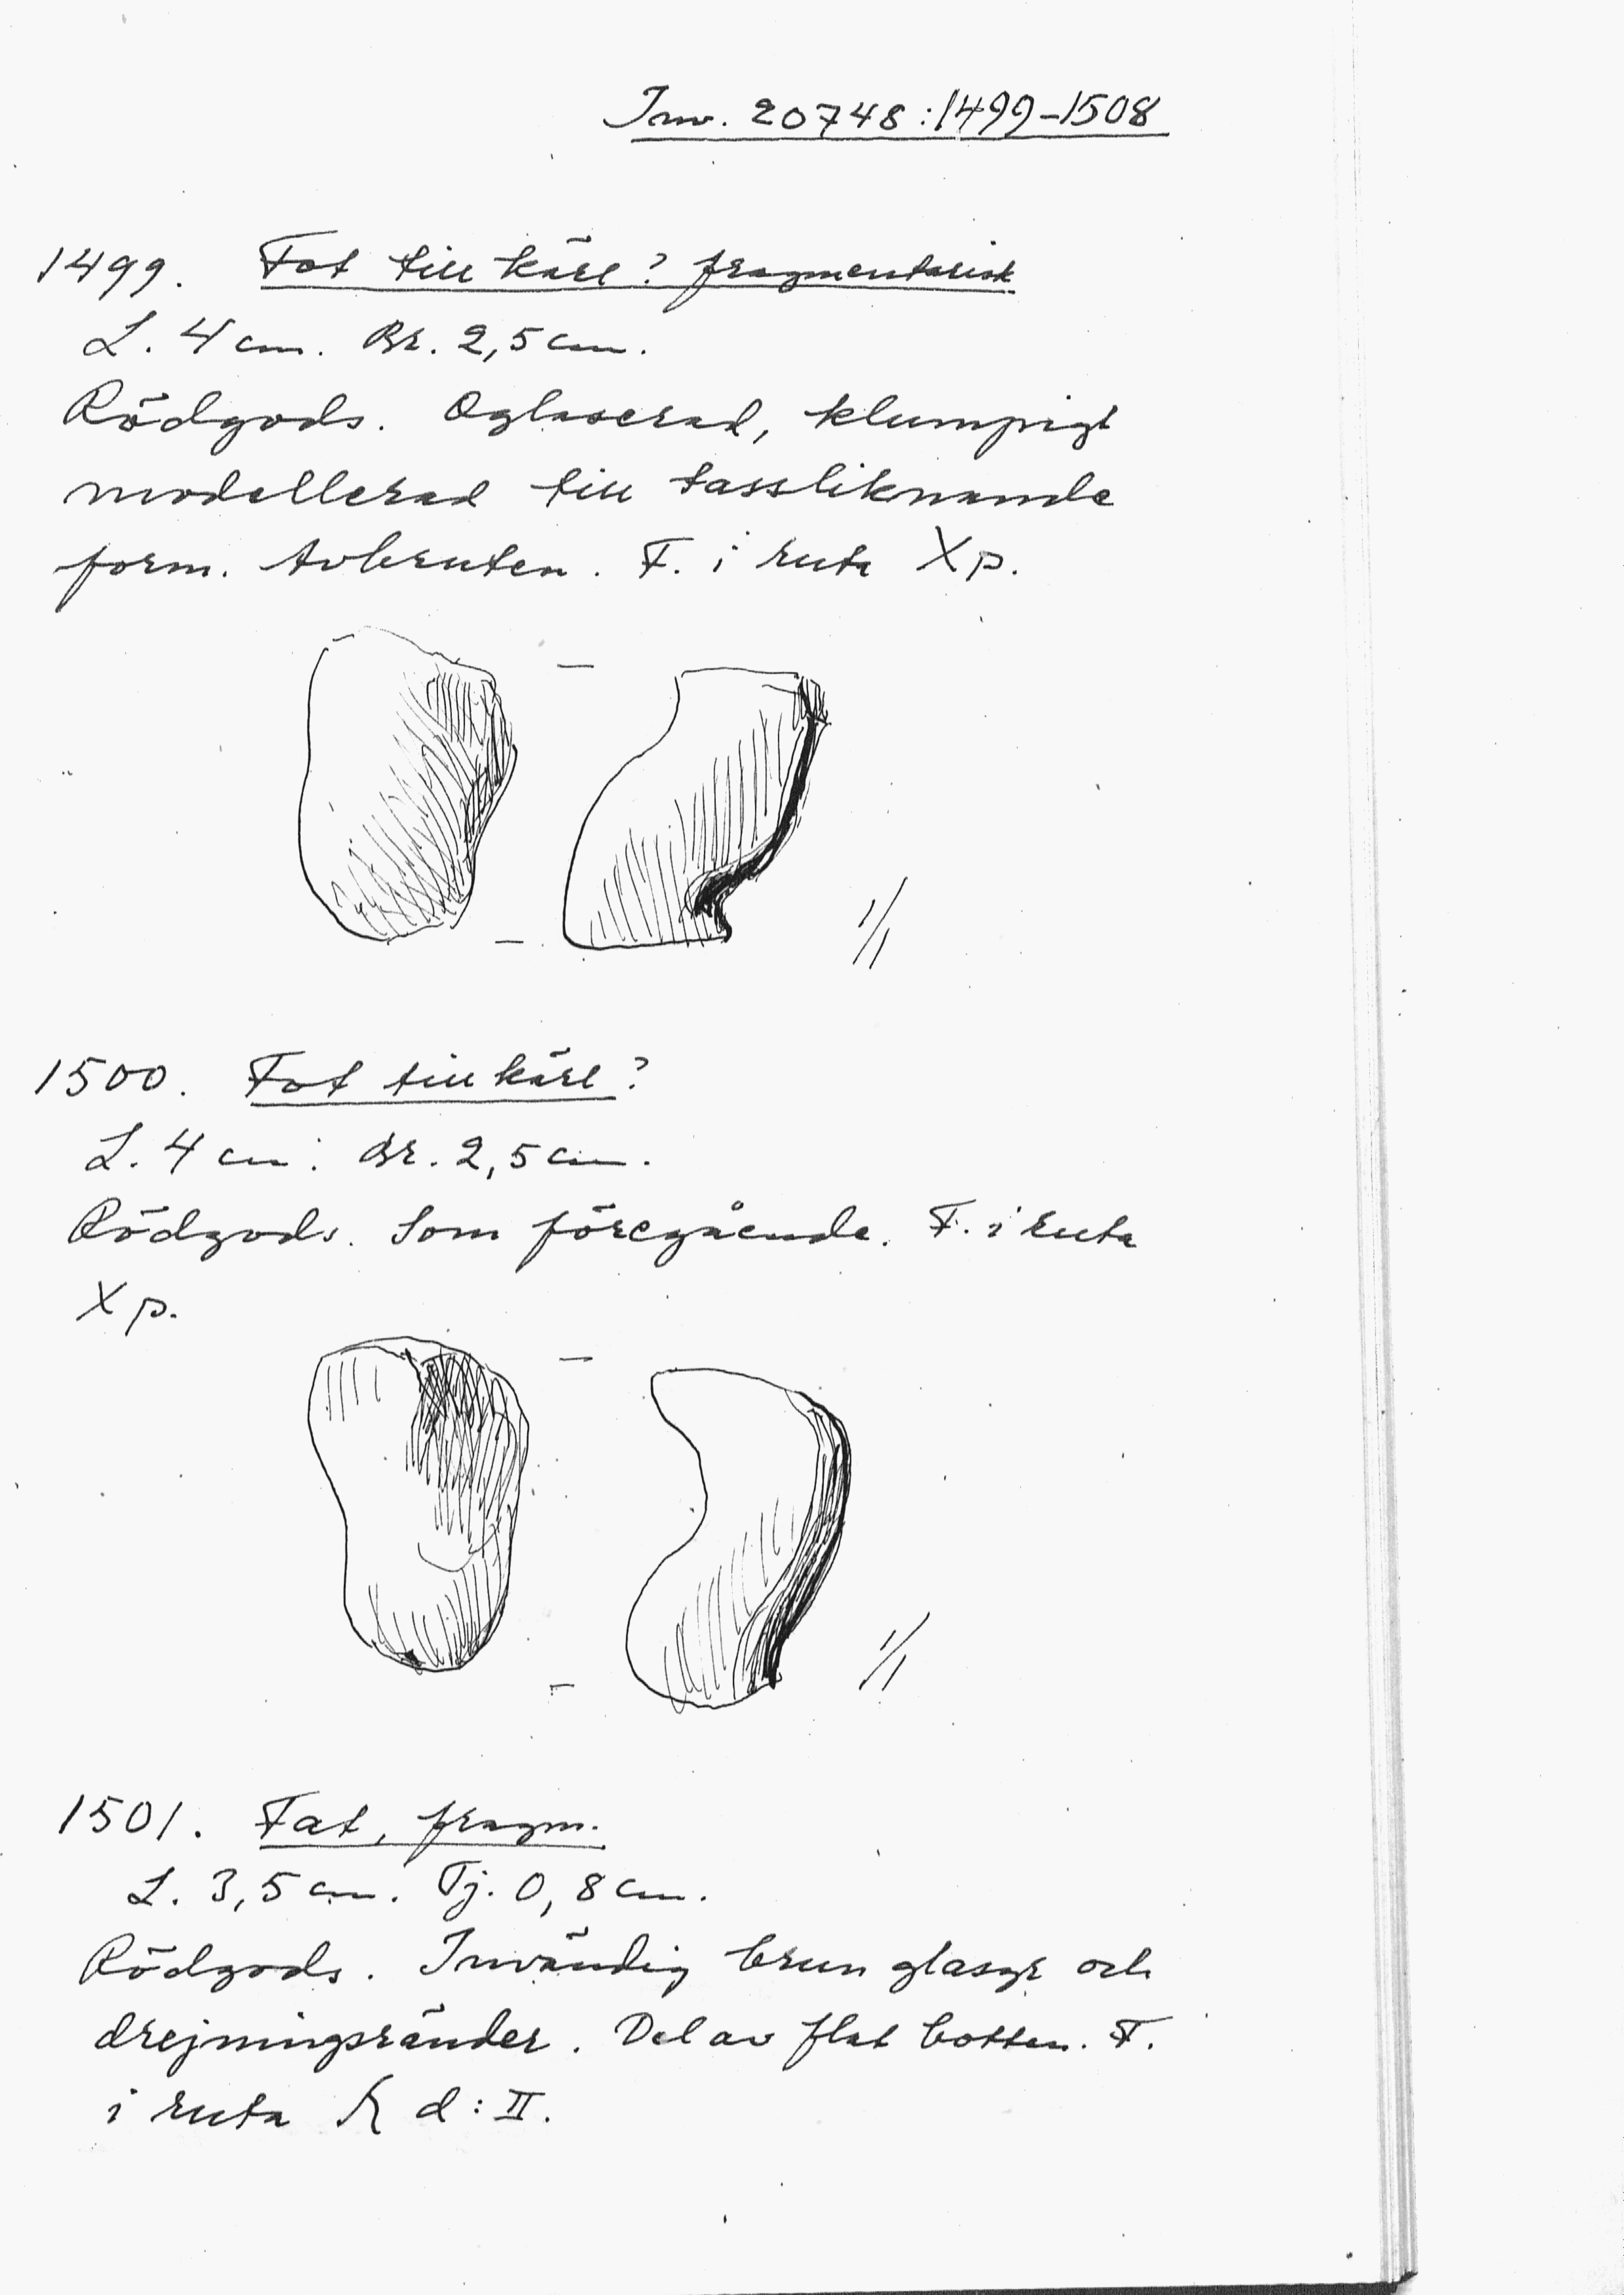 Inv. 20748:1499-1508
1499. Fot till kärl? fragmentarisk
L. 4 cm. Br. 2,5 cm.
Rödgods. Oglaserad, klumpigt
modellerad till tassliknande
form. Avbruten. F. i ruta Xp.
1/1
1500. Fot till kärl?
L. 4 cm. Br. 2,5 cm.
Rödgods. Som föregående. F. i ruta
Xp.
1/1
1501. Fat, fragm.
L. 3,5 cm. Tj. 0,8 cm.
Rödgods. Invändig brun glasyr och
drejningsränder. Del av flat botten. F.
i ruta d:II.